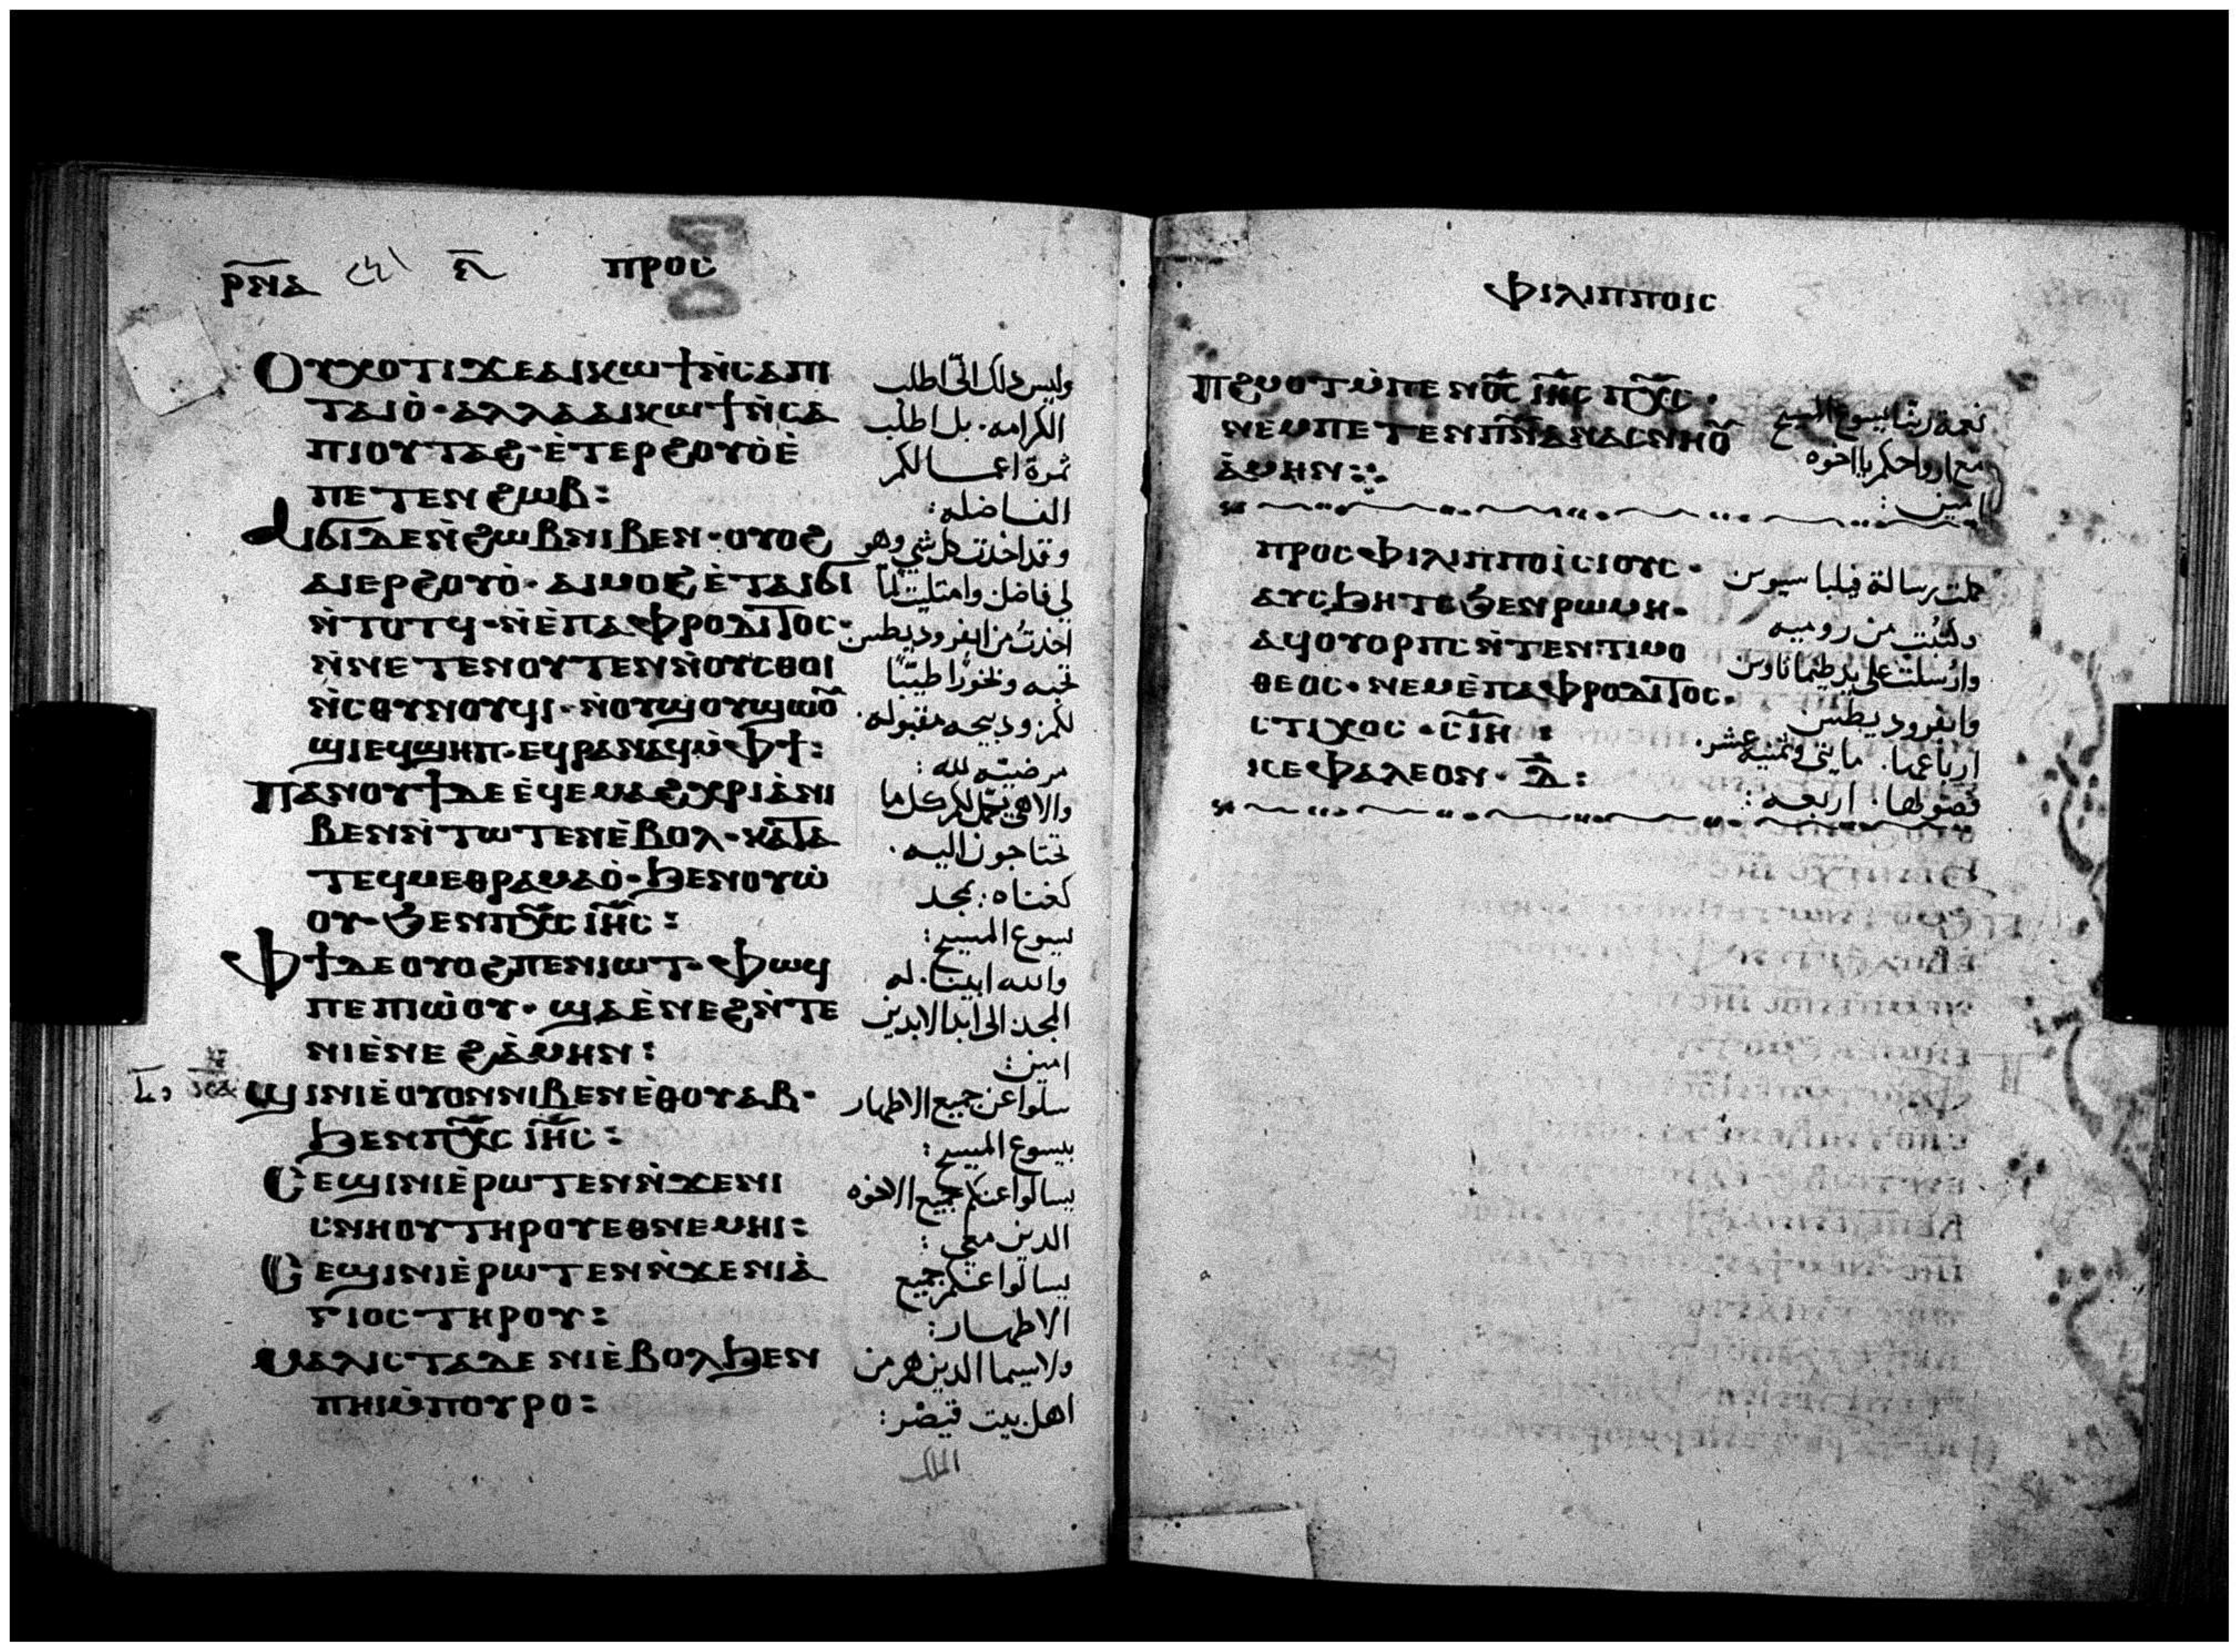 ⲣ̅ⲛ̅ⲁ̅
ⲡⲣⲟⲥ
ⲞⲩⲭⲟⲧⲓϪⲉⲁⲓⲕⲱϯⲛ̀ⲥⲁⲡⲓ
ⲧⲁⲓⲟ̀· ⲁⲗⲗⲁⲁⲓⲕⲱϯⲛ̀ⲥⲁ
ⲡⲓⲟⲩⲧⲁϩ·ⲉ̀ⲧⲉⲣϩⲟⲩⲟ̀ⲉ̀
ⲡⲉⲧⲉⲛϩⲱⲃ:
Ⲁⲓϭⲓⲇⲉⲛ̀ϩⲱⲃⲛⲓⲃⲉⲛ· ⲟⲩⲟϩ
ⲁⲓⲉⲣϩⲟⲩⲟ̀· ⲁⲓⲙⲟϩⲉ̀ⲧⲁⲓϭⲓ
ⲛ̀ⲧⲟⲧϥ·ⲛ̀ⲉ̀ⲡⲁⲫⲣⲟⲇⲓⲧⲟⲥ·
ⲛ̀ⲛⲉⲧⲉⲛⲟⲩⲧⲉⲛⲛ̀ⲟⲩⲥⲑⲟⲓ
ⲛ̀ⲥⲑⲩⲛⲟⲩϥⲓ·ⲛ̀ⲟⲩϣⲟⲩϣⲱⲟ̅
ϣⲓⲉϥϣⲏⲡ·ⲉϥⲣⲁⲛⲁϥⲙ̀ⲫϯ:
Ⲡⲁⲛⲟⲩϯⲇⲉⲉ̀ϥⲉⲙⲁϩⲭⲣⲓⲁ̀ⲛⲓ
ⲃⲉⲛⲛ̀ⲧⲱⲧⲉⲛⲉ̀ⲃⲟⲗ·ⲕⲁⲧⲁ
ⲧⲉϥⲙⲉⲑⲣⲁⲙⲁⲟ̀·ϧⲉⲛⲟⲩⲱ̀
ⲟⲩ·ϧⲉⲛⲡⲭ̅ⲥ ⲓⲏ̅ⲥ:
Ⲫϯⲇⲉⲟⲩⲟϩⲡⲉⲛⲓⲱⲧ·ⲫⲱϥ
ⲡⲉⲡⲓⲱ̀ⲟⲩ·ϣⲁⲉ̀ⲛⲉϩⲛ̀ⲧⲉ
ⲛⲓⲉ̀ⲛⲉϩⲁ̀ⲙⲏⲛ:
Ϣⲓⲛⲓⲉⲟⲩⲟⲛⲛⲓⲃⲉⲛⲉ̀ⲑⲟⲩⲁⲃ·
ϧⲉⲛⲡⲭ̅ⲥ ⲓⲏ̅ⲥ:
Ⲥⲉϣⲓⲛⲓⲉ̀ⲣⲱⲧⲉⲛⲛ̀ϫⲉⲛⲓ
ⲥⲛⲏⲟⲩⲧⲏⲣⲟⲩⲉⲑⲛⲉⲙⲏⲓ:
Ⲥⲉϣⲓⲛⲓⲉ̀ⲣⲱⲧⲉⲛⲛ̀ϫⲉⲛⲓⲁ̀
ⲅⲓⲟⲥⲧⲏⲣⲟⲩ:
Ⲙⲁⲗⲓⲥⲧⲁⲇⲉ ⲛⲓⲉ̀ⲃⲟⲗϧⲉⲛ
ⲡⲏⲓⲙ̀ⲡⲟⲩⲣⲟ:
وليس ذلك اني اطلب
الكرامه. بل اطلب
ثمرة اعمالكم
الفاضله:
وقد اخذت كل شي وهو
لي فاضل وامتليت لما
اخذتُ من ابفروديطس
تحيه وبخورًا طيبًا
لكم وذبيحه مقبوله.
مرضيّه لله:
والاهي يكمل لكم كل ما
تحتاجون اليه.
كغناه: بمجد
يسوع المسيح:
والله ابينا. له
المجد الى ابد الابدين
امين:
سلوا عن جميع الاطهار
بيسوع المسيح:
يسالوا عنكم جميع الاخوه
الذين معي:
يسالوا عنكم جميع
الاطهار:
ولاسيما الذين هم من
اهل بيت قيصر:
الملك
ⲫⲓⲗⲓⲡⲡⲟⲓⲥ
Ⲡϩⲙⲟⲧⲙ̀ⲡⲉⲛⲟ̅ⲥ ⲓⲏ̅ⲥ ⲡⲭ̅ⲥ·
ⲛⲉⲙⲡⲉⲧⲉⲛⲡⲛ̅ⲁⲛⲁⲥⲛⲏⲟ̅
ⲁ̀ⲙⲏⲛ:
ⲡⲣⲟⲥⲫⲓⲗⲓⲡⲡⲟⲓⲥⲓⲟⲩⲥ·
ⲁⲩⲥϧⲏⲧⲥϧⲉⲛⲣⲱⲙⲏ·
ⲁϥⲟⲩⲟⲣⲡⲥⲛ̀ⲧⲉⲛⲧⲓⲙⲟ
ⲑⲉⲟⲥ·ⲛⲉⲙⲉ̀ⲡⲁⲫⲣⲟⲇⲓⲧⲟⲥ·
ⲥⲧⲓⲭⲟⲥ·ⲥ̅ⲓ̅ⲏ̅:
ⲕⲉⲫⲁⲗⲉⲟⲛ·ⲇ̅:
نعمة ربنا يسوع المسيح
مع ارواحكم يا اخوه
امين:
كملت رسالة فيلباسيوس
وكُتبت من روميه
وارُسلت على يد طيماتاوس
وابفروديطس
ارباعها. مايتي وثمنيه عشر.
فصولها. اربعه: